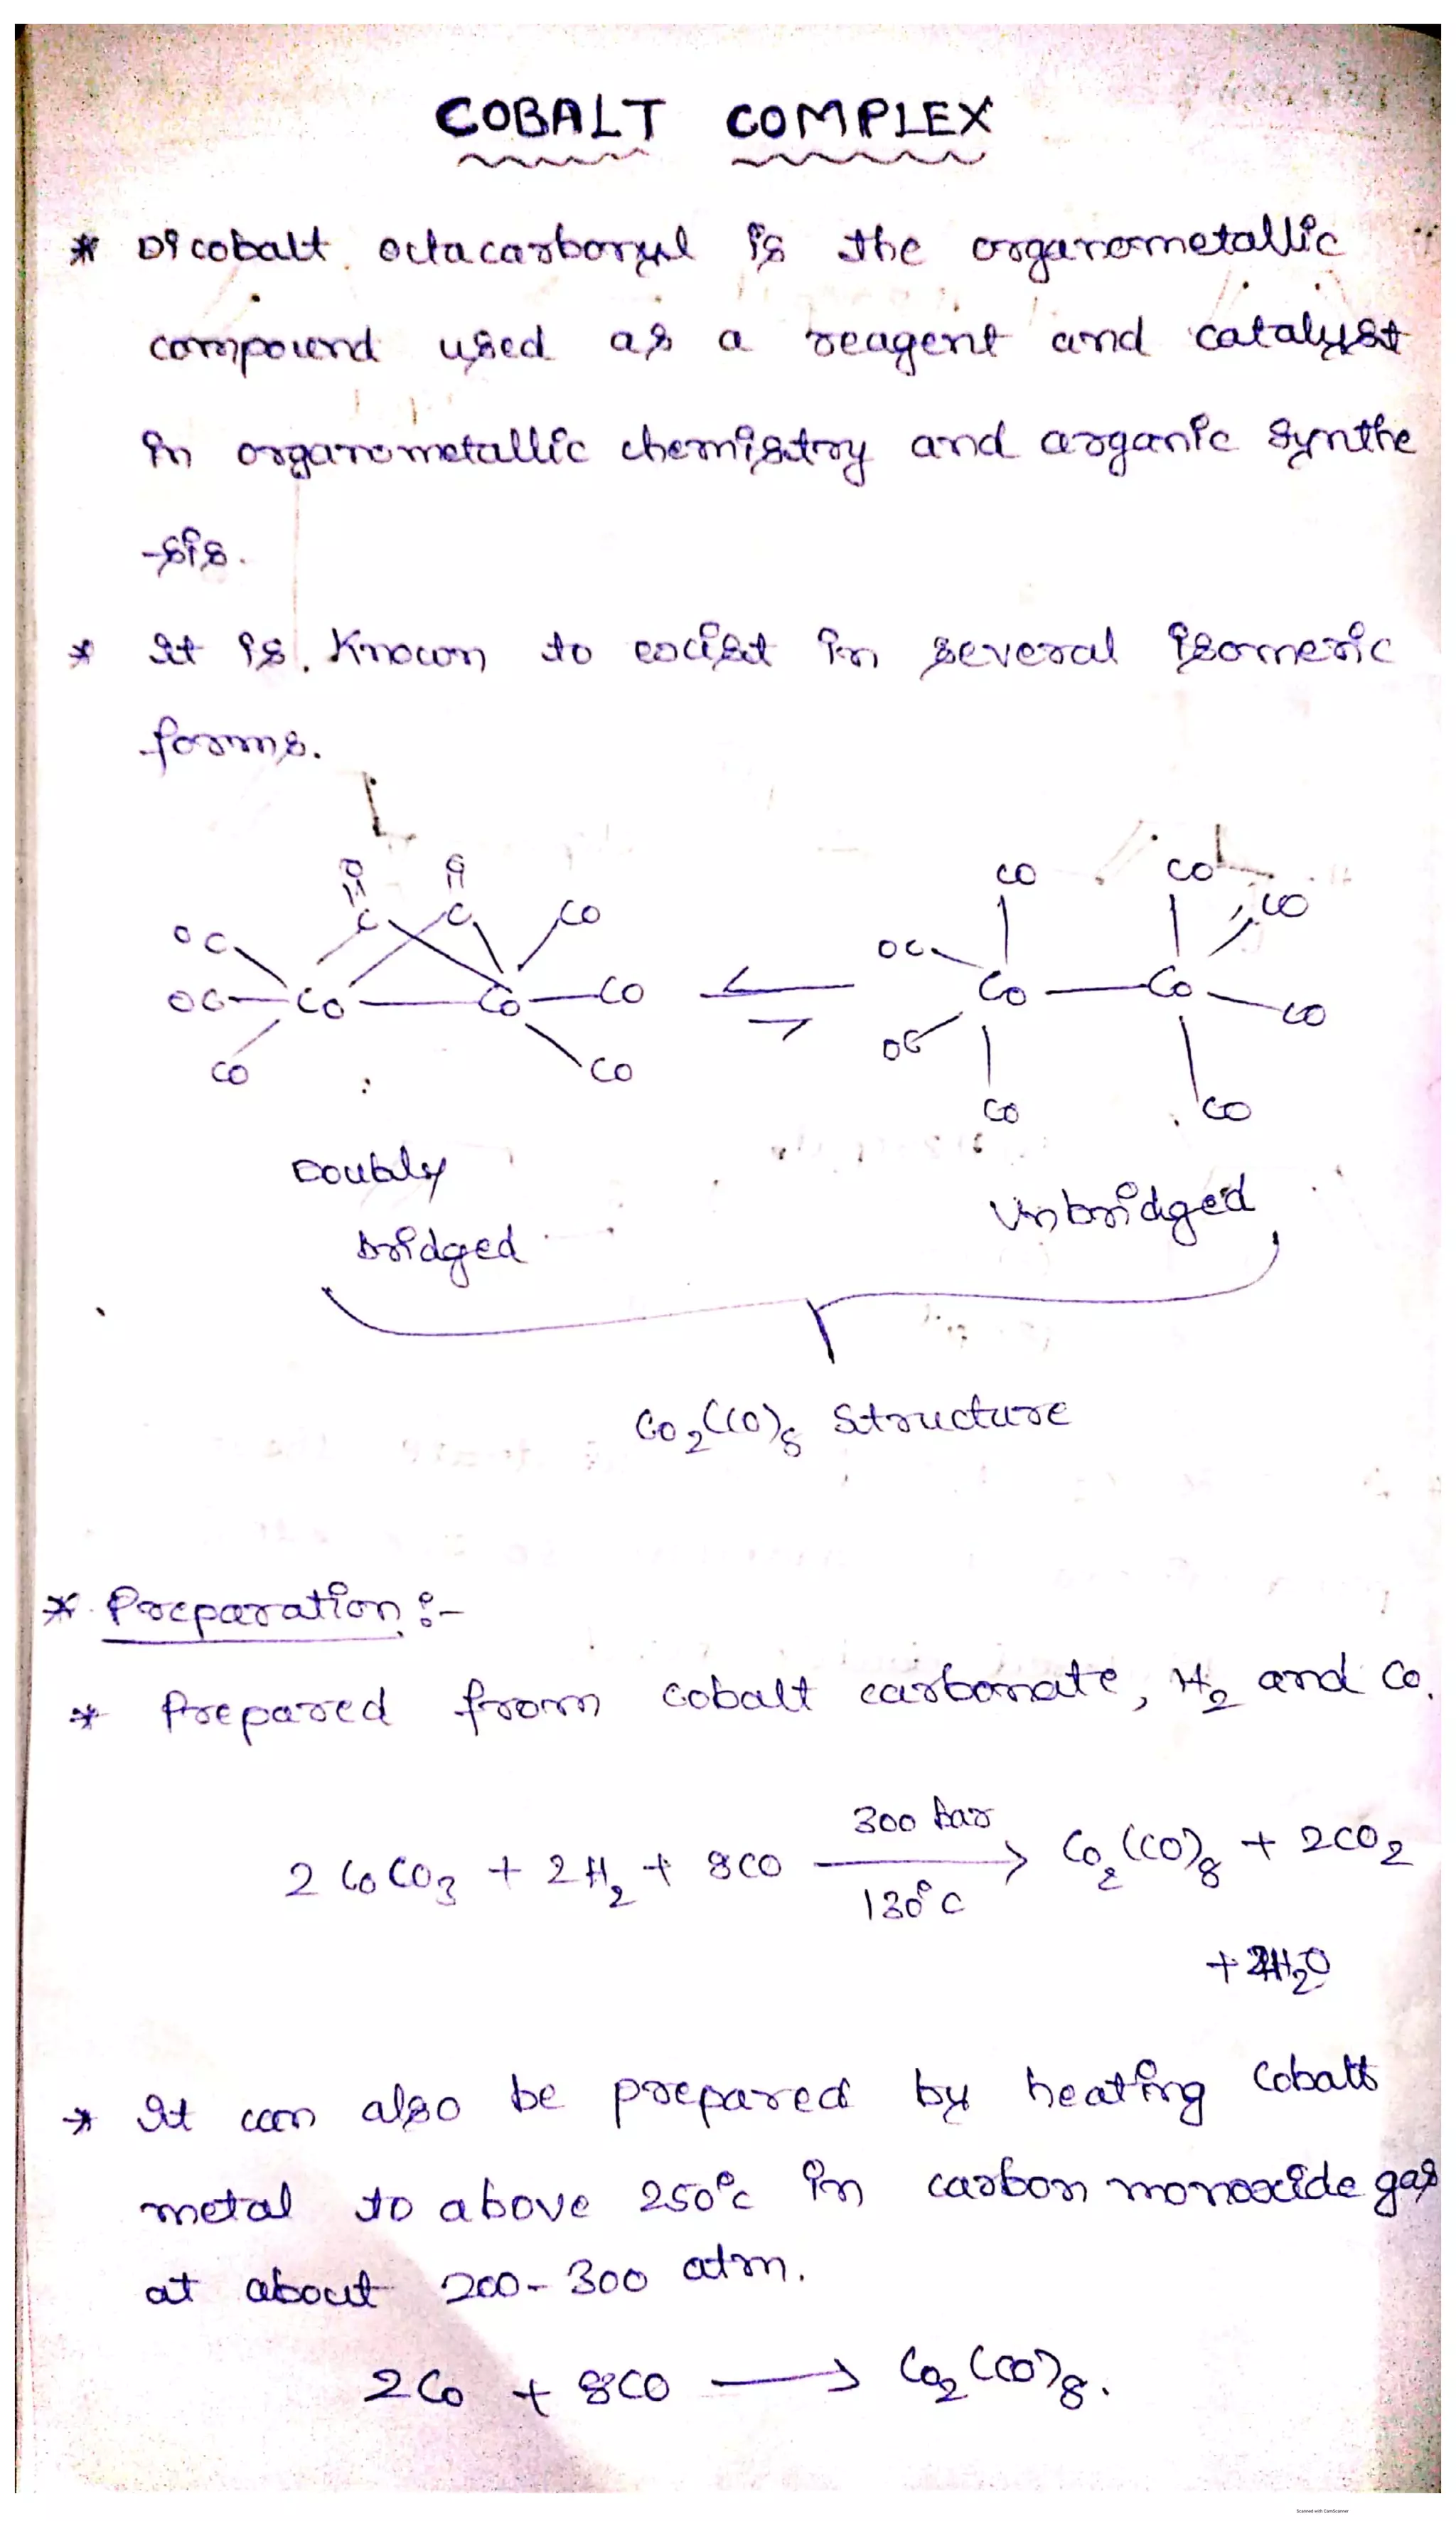 COBALT COMPLEX
* Dicobalt octacarbonyl is the organometallic
compound used as a reagent and catalyst
in organometallic chemistry and organic synthe
-sis.
* It is known to exist in several isomeric
forms.
O O CO CO
C C CO CO
OC OC
OC Co Co CO Co Co CO
CO CO OC
CO CO
Doubly
bridged Unbridged
Co2(CO)8 Structure
* Preparation :-
* Prepared from cobalt carbonate, H2 and CO.
300 bar
2 CoCO3 + 2H2 + 8CO → Co2(CO)8 + 2CO2
130°C
+ 2H2O
* It can also be prepared by heating Cobalt
metal to above 250°C in carbon monoxide gas
at about 200-300 atm.
2Co + 8CO → Co2(CO)8.
Scanned with CamScanner